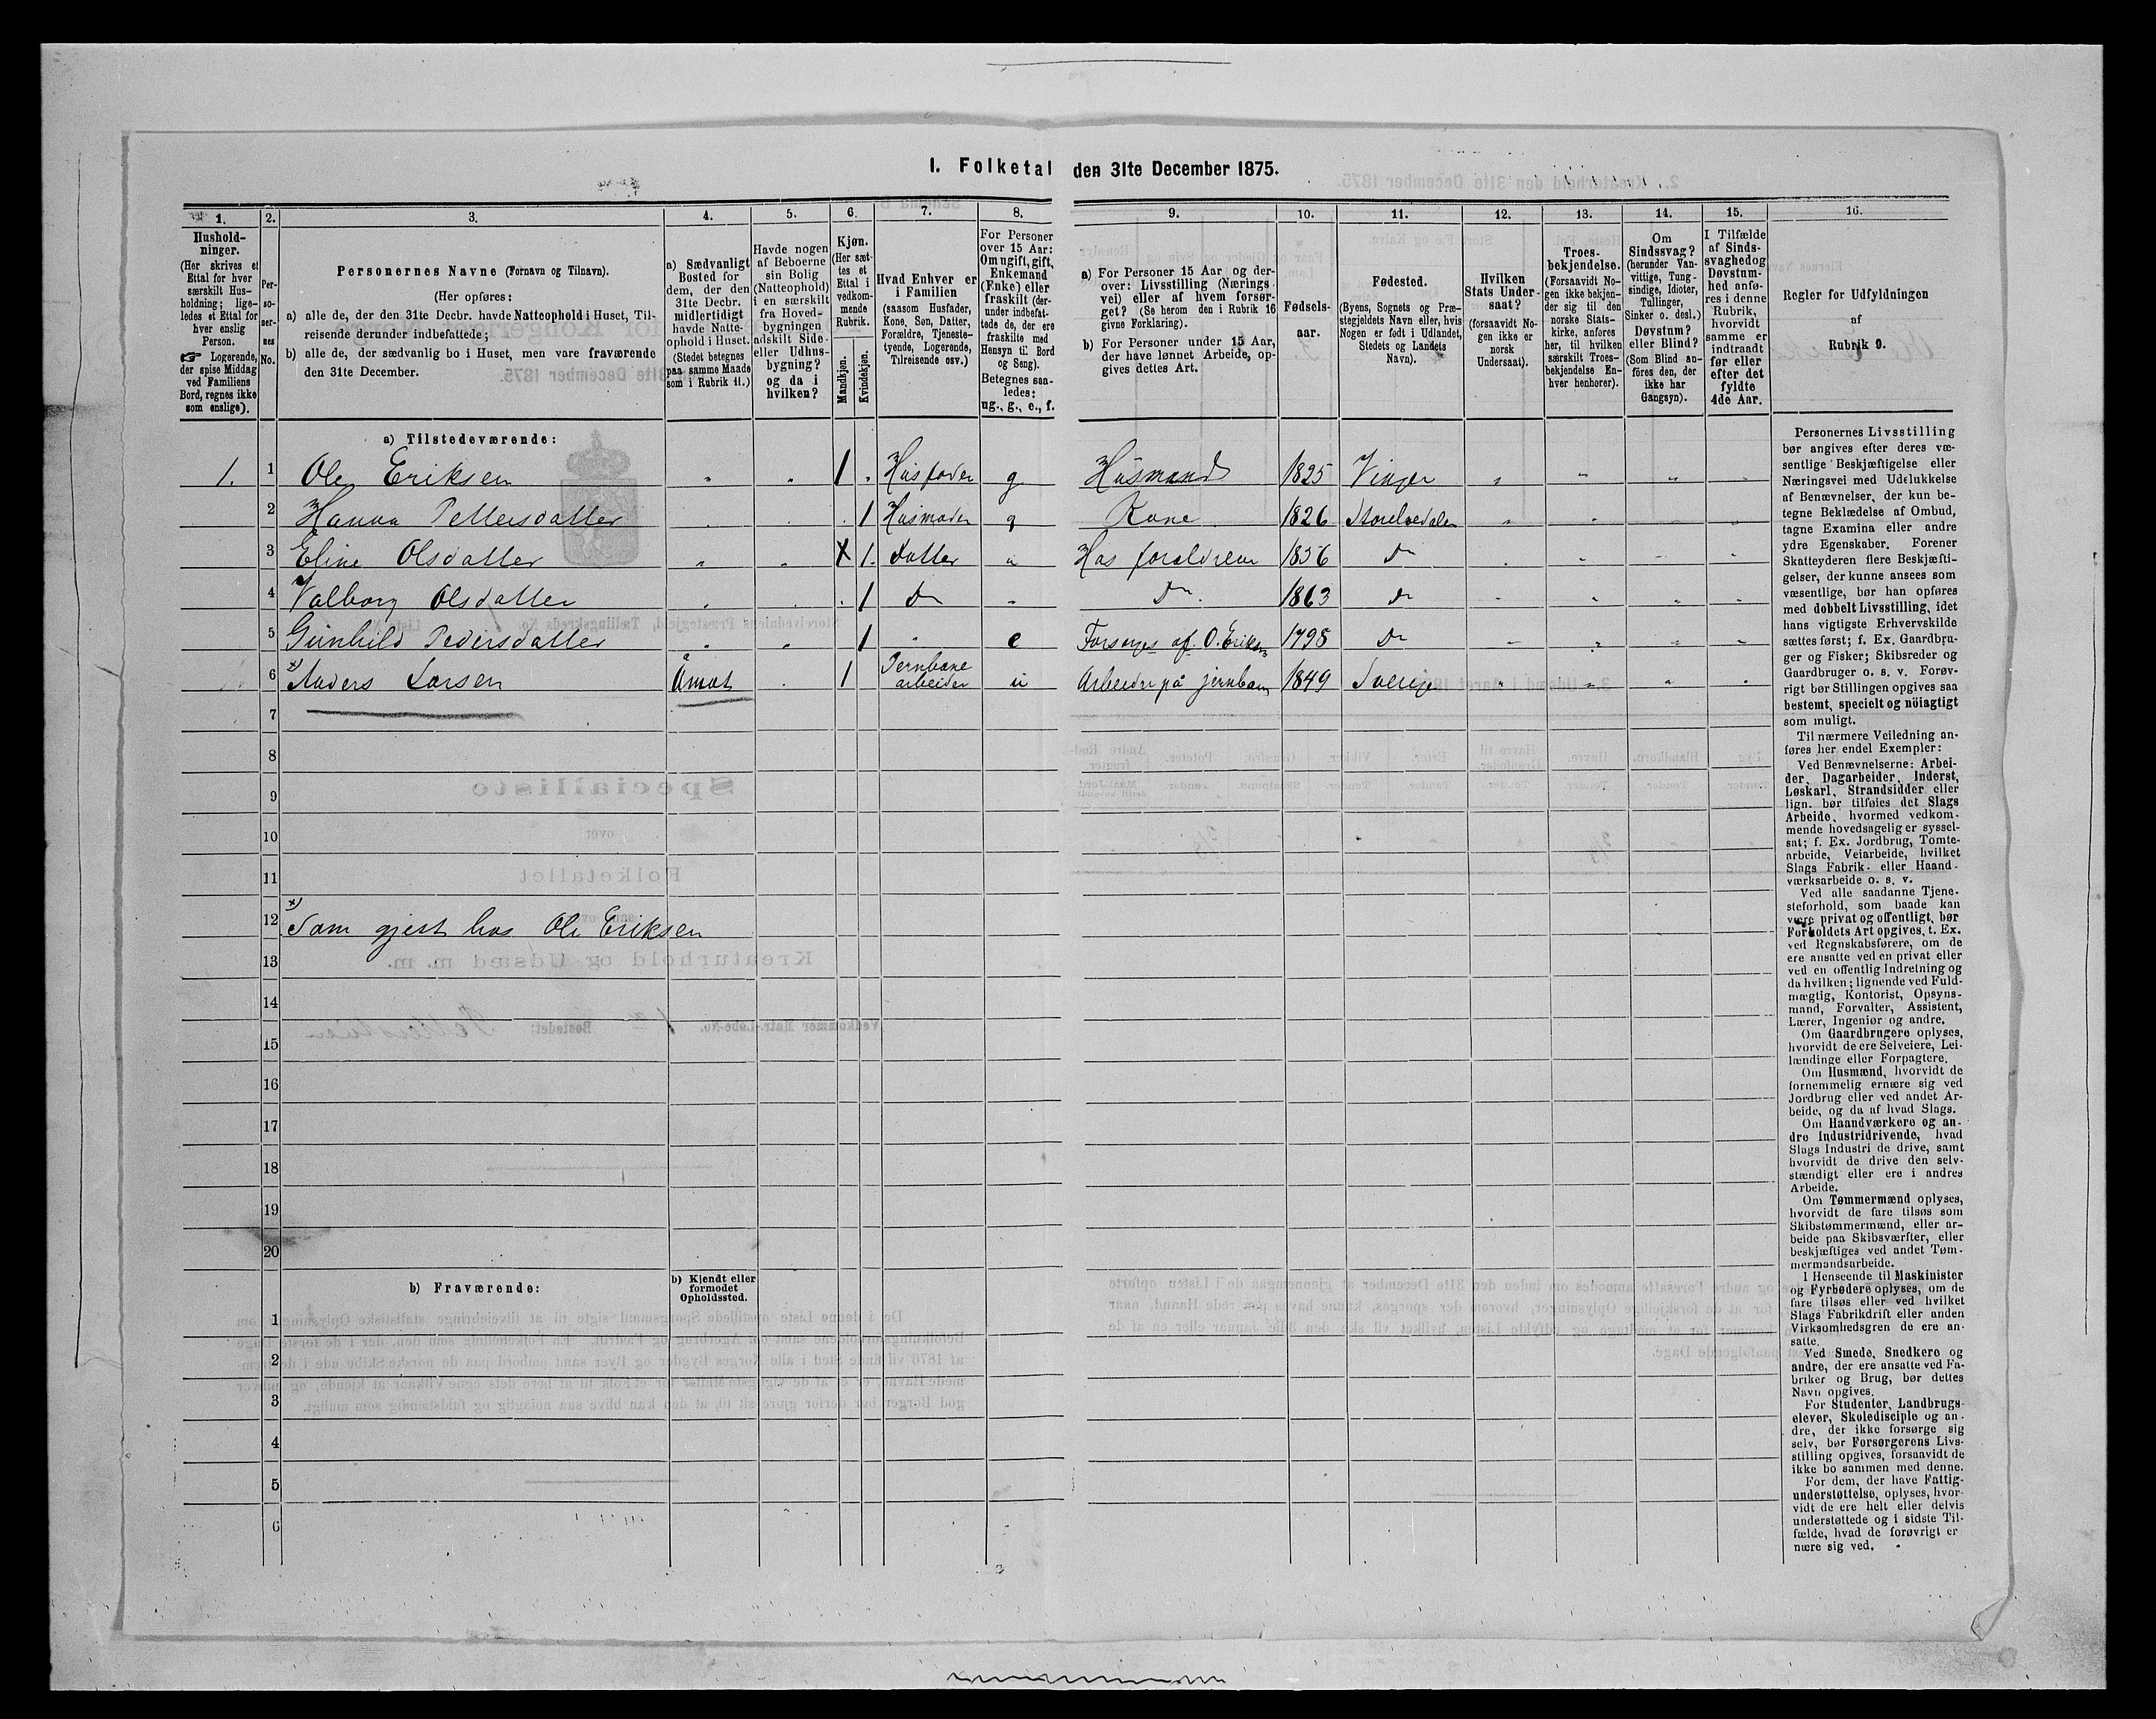 1. Folketal den 31te December 1875.
1. 2. 3. 4. 5. 6. 7. 8. 9. 10. 11. 12. 13. 14. 15. 16.
Hushold-
ninger.
(Her skrives et
Ettal for hver
særskilt Hus-
holdning; lige-
ledes et Ettal for
hver enslig
Person.
☞ Logerende,
der spise Middag
ved Familiens
Bord, regnes ikke
som enslige).
Per-
so-
ner-
nes
No.
Personernes Navne (Fornavn og Tilnavn).
(Her opføres:
a) alle de, der den 31te Decbr. havde Natteophold i Huset, Til-
reisende derunder indbefattede;
b) alle de, der sædvanlig bo i Huset, men vare fraværende
den 31te December.
a) Sædvanligt
Bosted for
dem, der den
31te Decbr.
midlertidigt
havde Natte-
ophold i Huset.
(Stedet betegnes
paa samme Maade
som i Rubrik 11.)
Havde nogen
af Beboerne
sin Bolig
(Natteophold)
i en særskilt
fra Hoved-
bygningen
adskilt Side-
eller Udhus-
bygning?
og da i
hvilken?
Kjøn.
(Her sæt-
tes et
Ettal i
vedkom-
mende
Rubrik.
Mandkjøn.
Kvindekjøn.
Hvad Enhver er
i Familien
(saasom Husfader,
Kone, Søn, Datter,
Forældre, Tjeneste-
tyende, Logerende,
Tilreisende osv.)
For Personer
over 15 Aar:
Om ugift, gift,
Enkemand
(Enke) eller
fraskilt (der-
under indbefat-
tede de, der ere
fraskilte med
Hensyn til Bord
og Seng).
Betegnes saa-
ledes:
ug., g., e., f.
a) For Personer 15 Aar og der-
over: Livsstilling (Nærings-
vei) eller af hvem forsør-
get? (Se herom den i Rubrik 16
givne Forklaring).
b) For Personer under 15 Aar,
der have lønnet Arbeide, op-
gives dettes Art.
Fødsels-
aar.
Fødested.
(Byens, Sognets og Præ-
stegjeldets Navn eller, hvis
Nogen er født i Udlandet,
Stedets og Landets
Navn).
Hvilken
Stats Under-
saat?
(forsaavidt No-
gen ikke er
norsk
Undersaat).
Troes-
bekjendelse.
(Forsaavidt No-
gen ikke bekjen-
der sig til den
norske Stats-
kirke, anføres
her, til hvilken
særskilt Troes-
bekjendelse En-
hver henhører).
Om
Sindssvag?
(herunder Van-
vittige, Tung-
sindige, Idioter,
Tullinger,
Sinker o. desl.)
Døvstum?
eller Blind?
(Som Blind an-
føres den, der
ikke har
Gangsyn).
I Tilfælde
af Sinds-
svaghed og
Døvstum-
hed anfø-
res i denne
Rubrik,
hvorvidt
samme er
indtraadt
før eller
efter det
fyldte
4de Aar.
Regler for Udfyldningen
af
Rubrik 9.
a) Tilstedeværende:
1. 1 Ole Eriksen " " 1 . Husfader g Husmand 1825 Vinger " " " "
2 Hanna Pettersdatter . . . 1 Husmoder g Kone 1826 Storelvedalen " " " "
3 Eline Olsdatter " " X 1. Datter u Hos foreldrene 1856 Do . " - "
4 Valborg Olsdatter . . . 1 Do " Do. 1863 Do - " " "
5 Gunhild Pedersdatter " " 1 " e Forsørges af O. Eriksen 1798 Do - " " "
6 x) Anders Larsen Åmot . 1 Jernbane
arbeider u Arbeider på jernban 1849 Sverige " " " "
7
8
9
10
11
12 x) Som gjest hos Ole Eriksen
13
14
15
16
17
18
19
20
b) Fraværende:
b) Kjendt eller
formodet
Opholdssted.
1
2
3
4
5
6
Personernes Livsstilling
bør angives efter deres væ-
sentlige Beskjæftigelse eller
Næringsvei med Udelukkelse
af Benævnelser, der kun be-
tegne Beklædelse af Ombud,
tagne Examina eller andre
ydre Egenskaber. Forener
Skatteyderen flere Beskjæfti-
gelser, der kunne ansees som
væsentlige, bør han opføres
med dobbelt Livsstilling, idet
hans vigtigste Erhvervskilde
sættes først; f. Ex. Gaardbru-
ger og Fisker; Skibsreder og
Gaardbruger o. s. v. Forøv-
rigt bør Stillingen opgives saa
bestemt, specielt og nöiagtigt
som muligt.
Til nærmere Veiledning an-
føres her endel Exempler:
Ved Benævnelserne: Arbei-
der, Dagarbeider, Inderst,
Løskarl, Strandsidder eller
lign. bør tilføies det Slags
Arbeide, hvormed vedkom-
mende hovedsagelig er syssel-
sat; f. Ex. Jordbrug, Tomte-
arbeide, Veiarbeide, hvilket
Slags Fabrik- eller Haand-
værksarbeide o. s. v.
Ved alle saadanne Tjene-
steforhold, som baade kan
være privat og offentligt, bør
Forholdets Art opgives, t. Ex.
ved Regnskabsførere, om de
ere ansatte ved en privat eller
ved en offentlig Indretning og
da hvilken; lignende ved Fuld-
mægtig, Kontorist, Opsyns-
mand, Forvalter, Assistent,
Lærer, Ingeniør og andre.
Om Gaardbrugere oplyses,
hvorvidt de ere Selveiere, Lei-
lændinge eller Forpagtere.
Om Husmænd, hvorvidt de
fornemmelig ernære sig ved
Jordbrug eller ved andet Ar-
beide, og da af hvad Slags.
Om Haandværkere og an-
dre Industridrivende, hvad
Slags Industri de drive, samt
hvorvidt de drive den selv-
stændigt eller ere i andres
Arbeide.
Om Tømmermænd oplyses,
hvorvidt de fare tilsøs som
Skibstømmermænd, eller ar-
beide paa Skibsværfter, eller
beskjæftiges ved andet Tøm-
mermandsarbeide.
I Henseende til Maskinister
og Fyrbødere oplyses, om de
fare tilsøs eller ved hvilket
Slags Fabrikdrift eller anden
Virksomhedsgren de ere an-
satte.
Ved Smede, Snedkere og
andre, der ere ansatte ved Fa-
briker og Brug, bør dettes
Navn opgives.
For Studenter, Landbrugs-
elever, Skoledisciple og an-
dre, der ikke forsørge sig
selv, bør Forsørgerens Livs-
stilling opgives, forsaavidt de
ikke bo sammen med denne.
For dem, der have Fattig-
understøttelse, oplyses, hvor-
vidt de ere helt eller delvis
understøttede og i sidste Til-
fælde, hvad de forøvrigt er
nære sig ved.